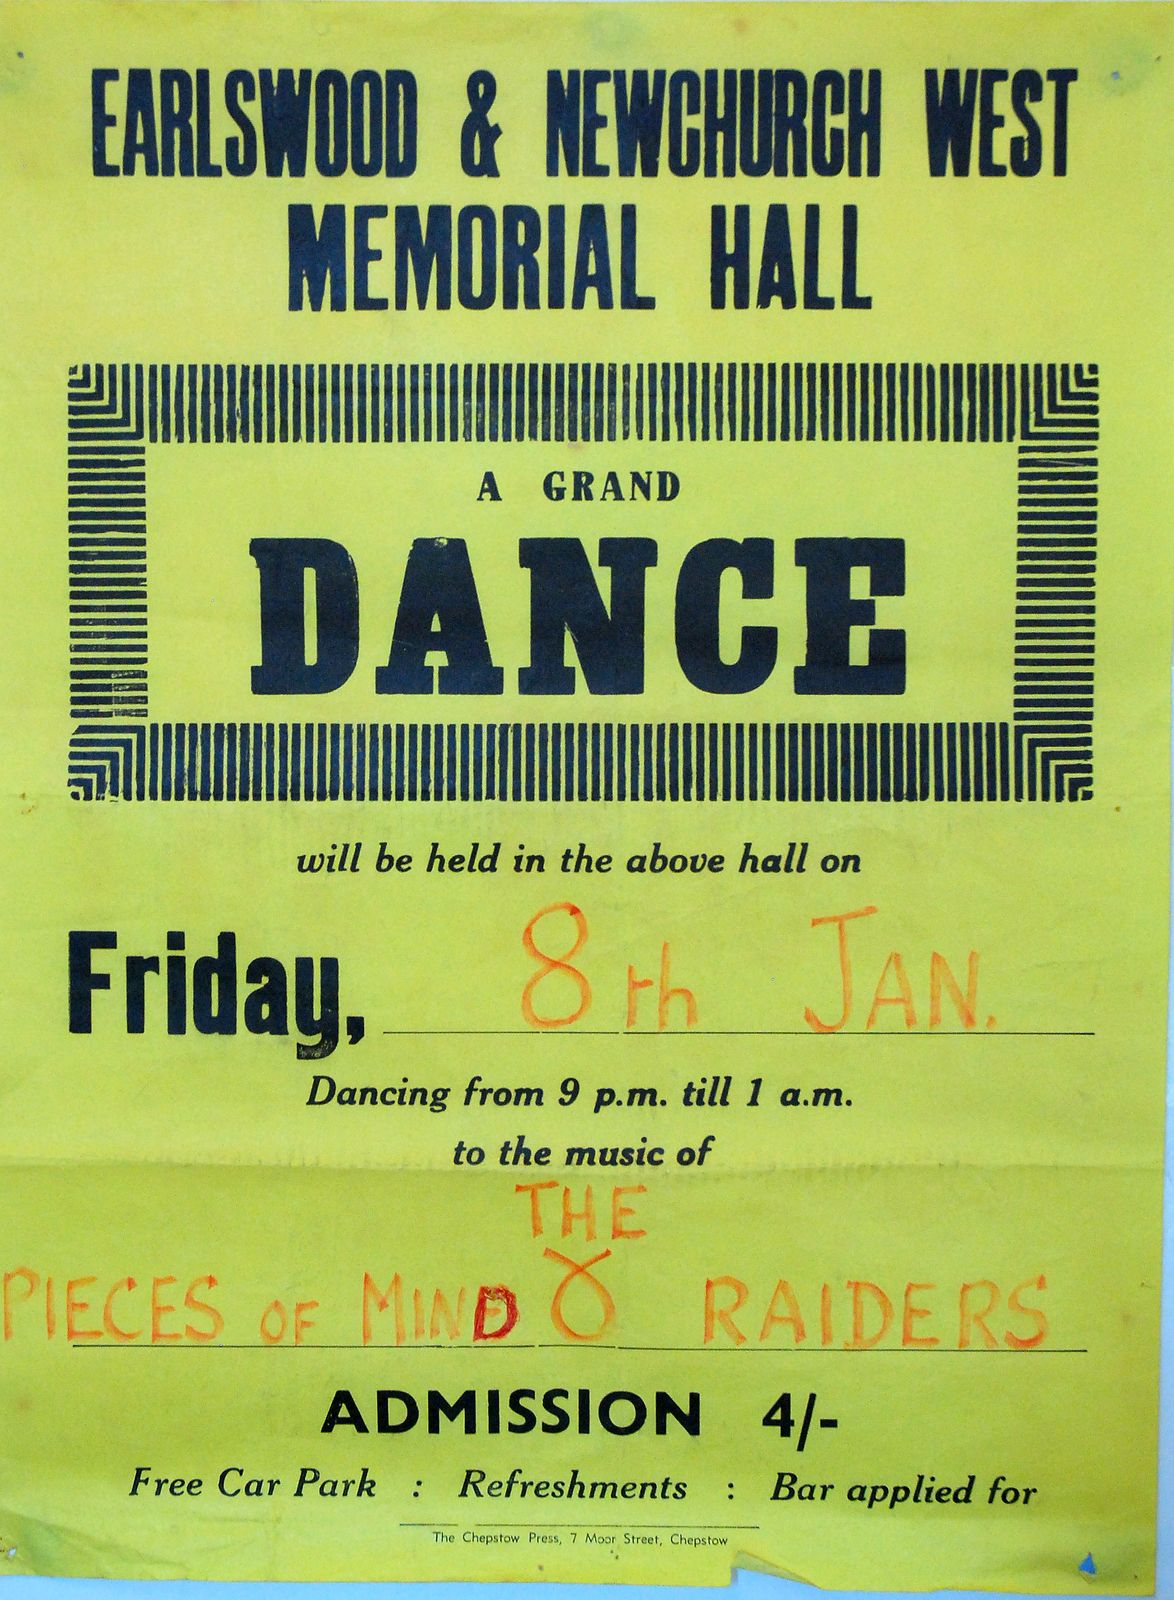 EARLSWOOD & NEWCHURCH WEST
MEMORIAL HALL
A GRAND
DANCE
will be held in the above hall on
Friday, 8th JAN.
Dancing from 9 p.m. till 1 a.m.
to the music of
THE
PIECES OF MIND & RAIDERS
ADMISSION 4/-
Free Car Park : Refreshments : Bar applied for
The Chepstow Press, 7 Moor Street, Chepstow